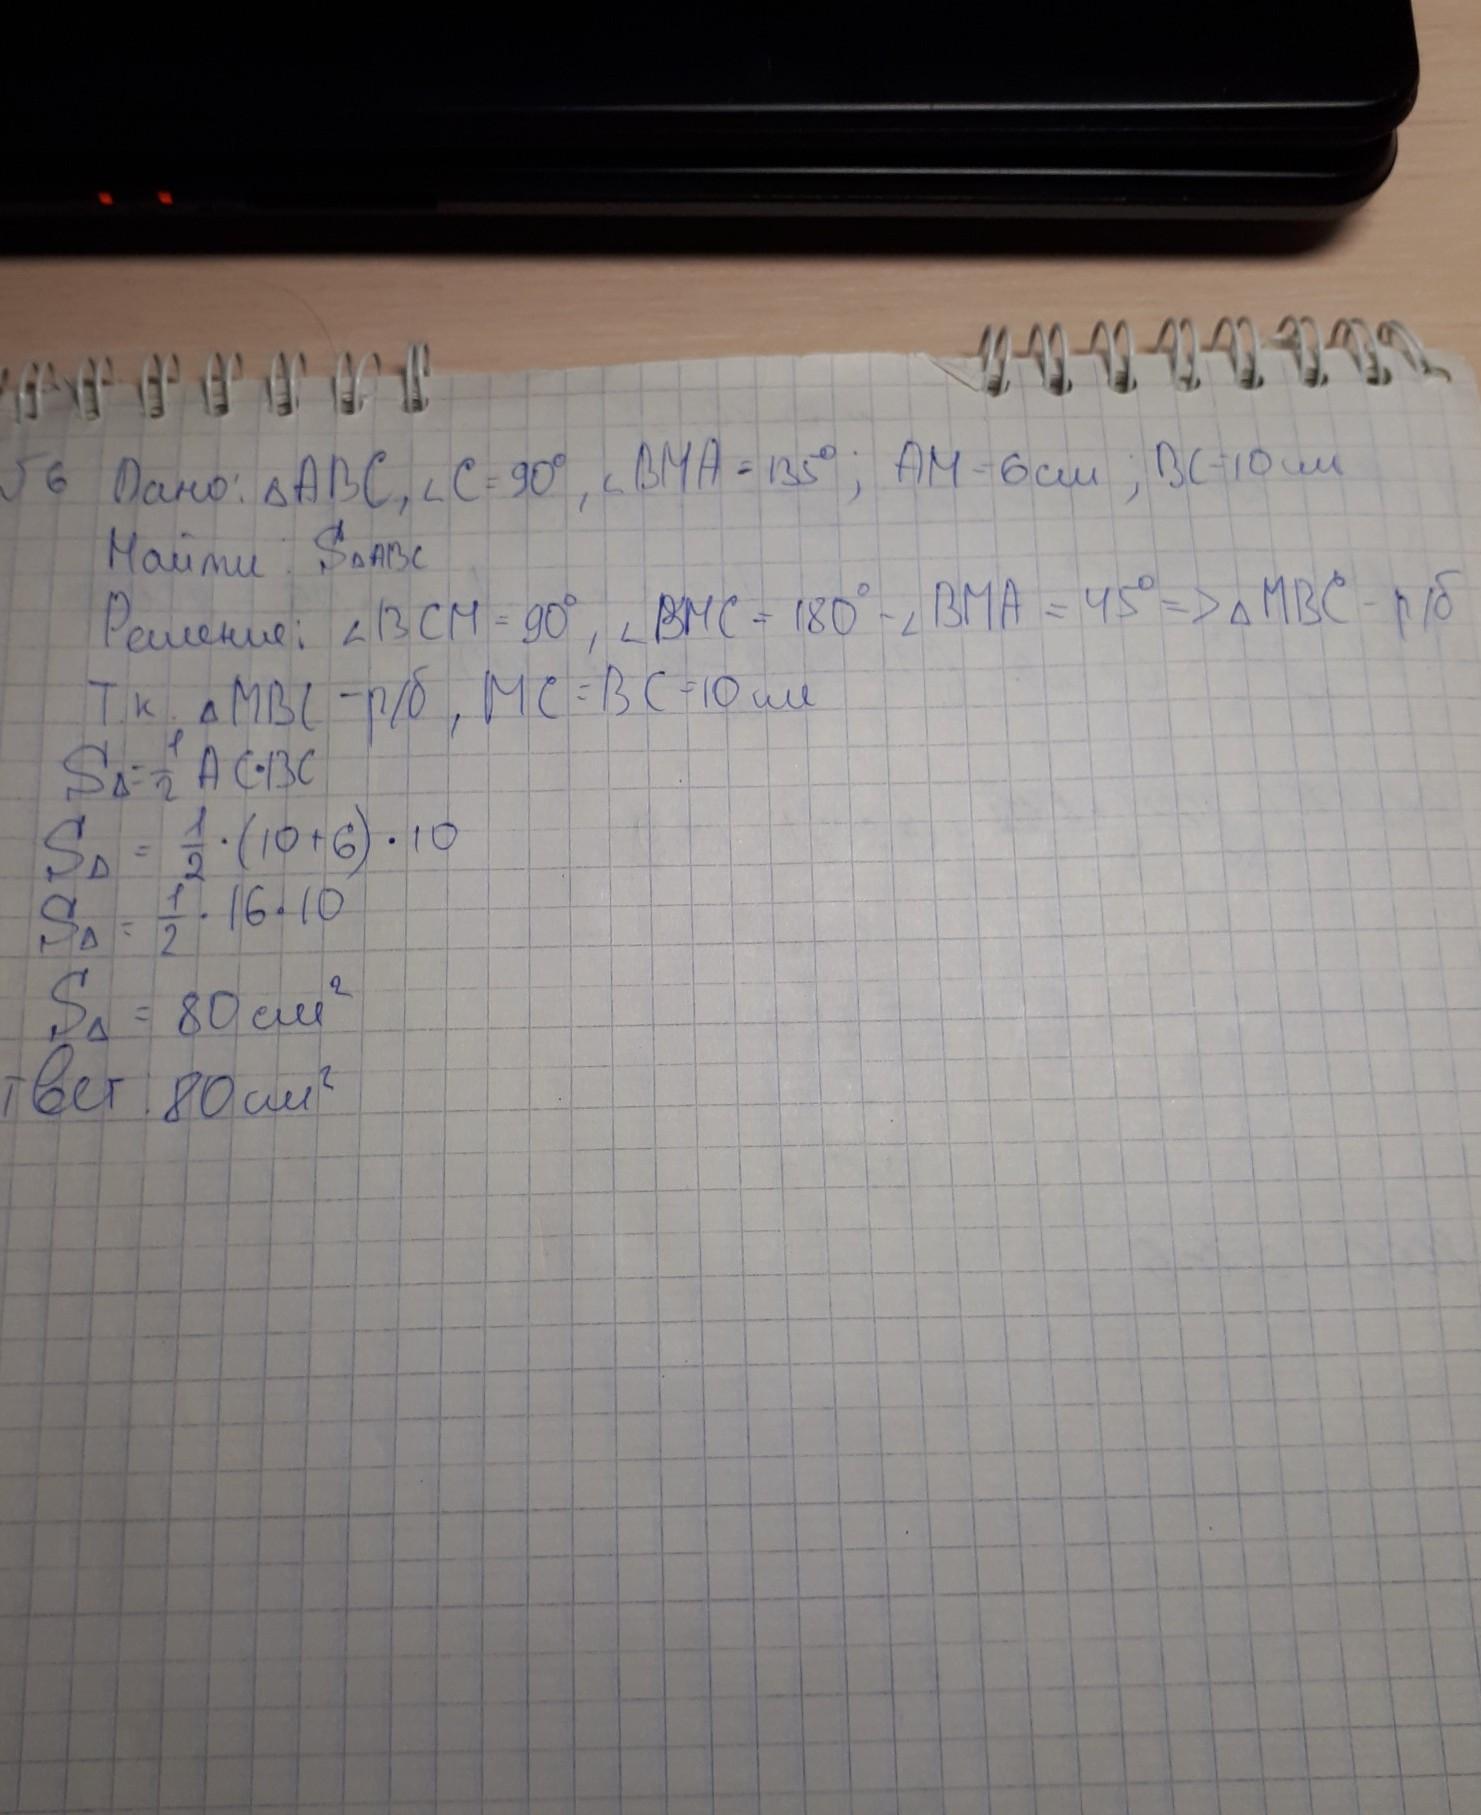 №6 Дано: △ABC, ∠C=90°, ∠BMA=135°; AM=6см; BC=10см
Найти: S△ABC
Решение: ∠BCM=90°, ∠BMC=180°-∠BMA=45°=>△MBC-р/б
Т.к. △MBC-р/б, MC=BC=10см
S△=1/2 AC·BC
S△ = 1/2·(10+6)·10
S△ = 1/2·16·10
S△ = 80см²
твет: 80см²